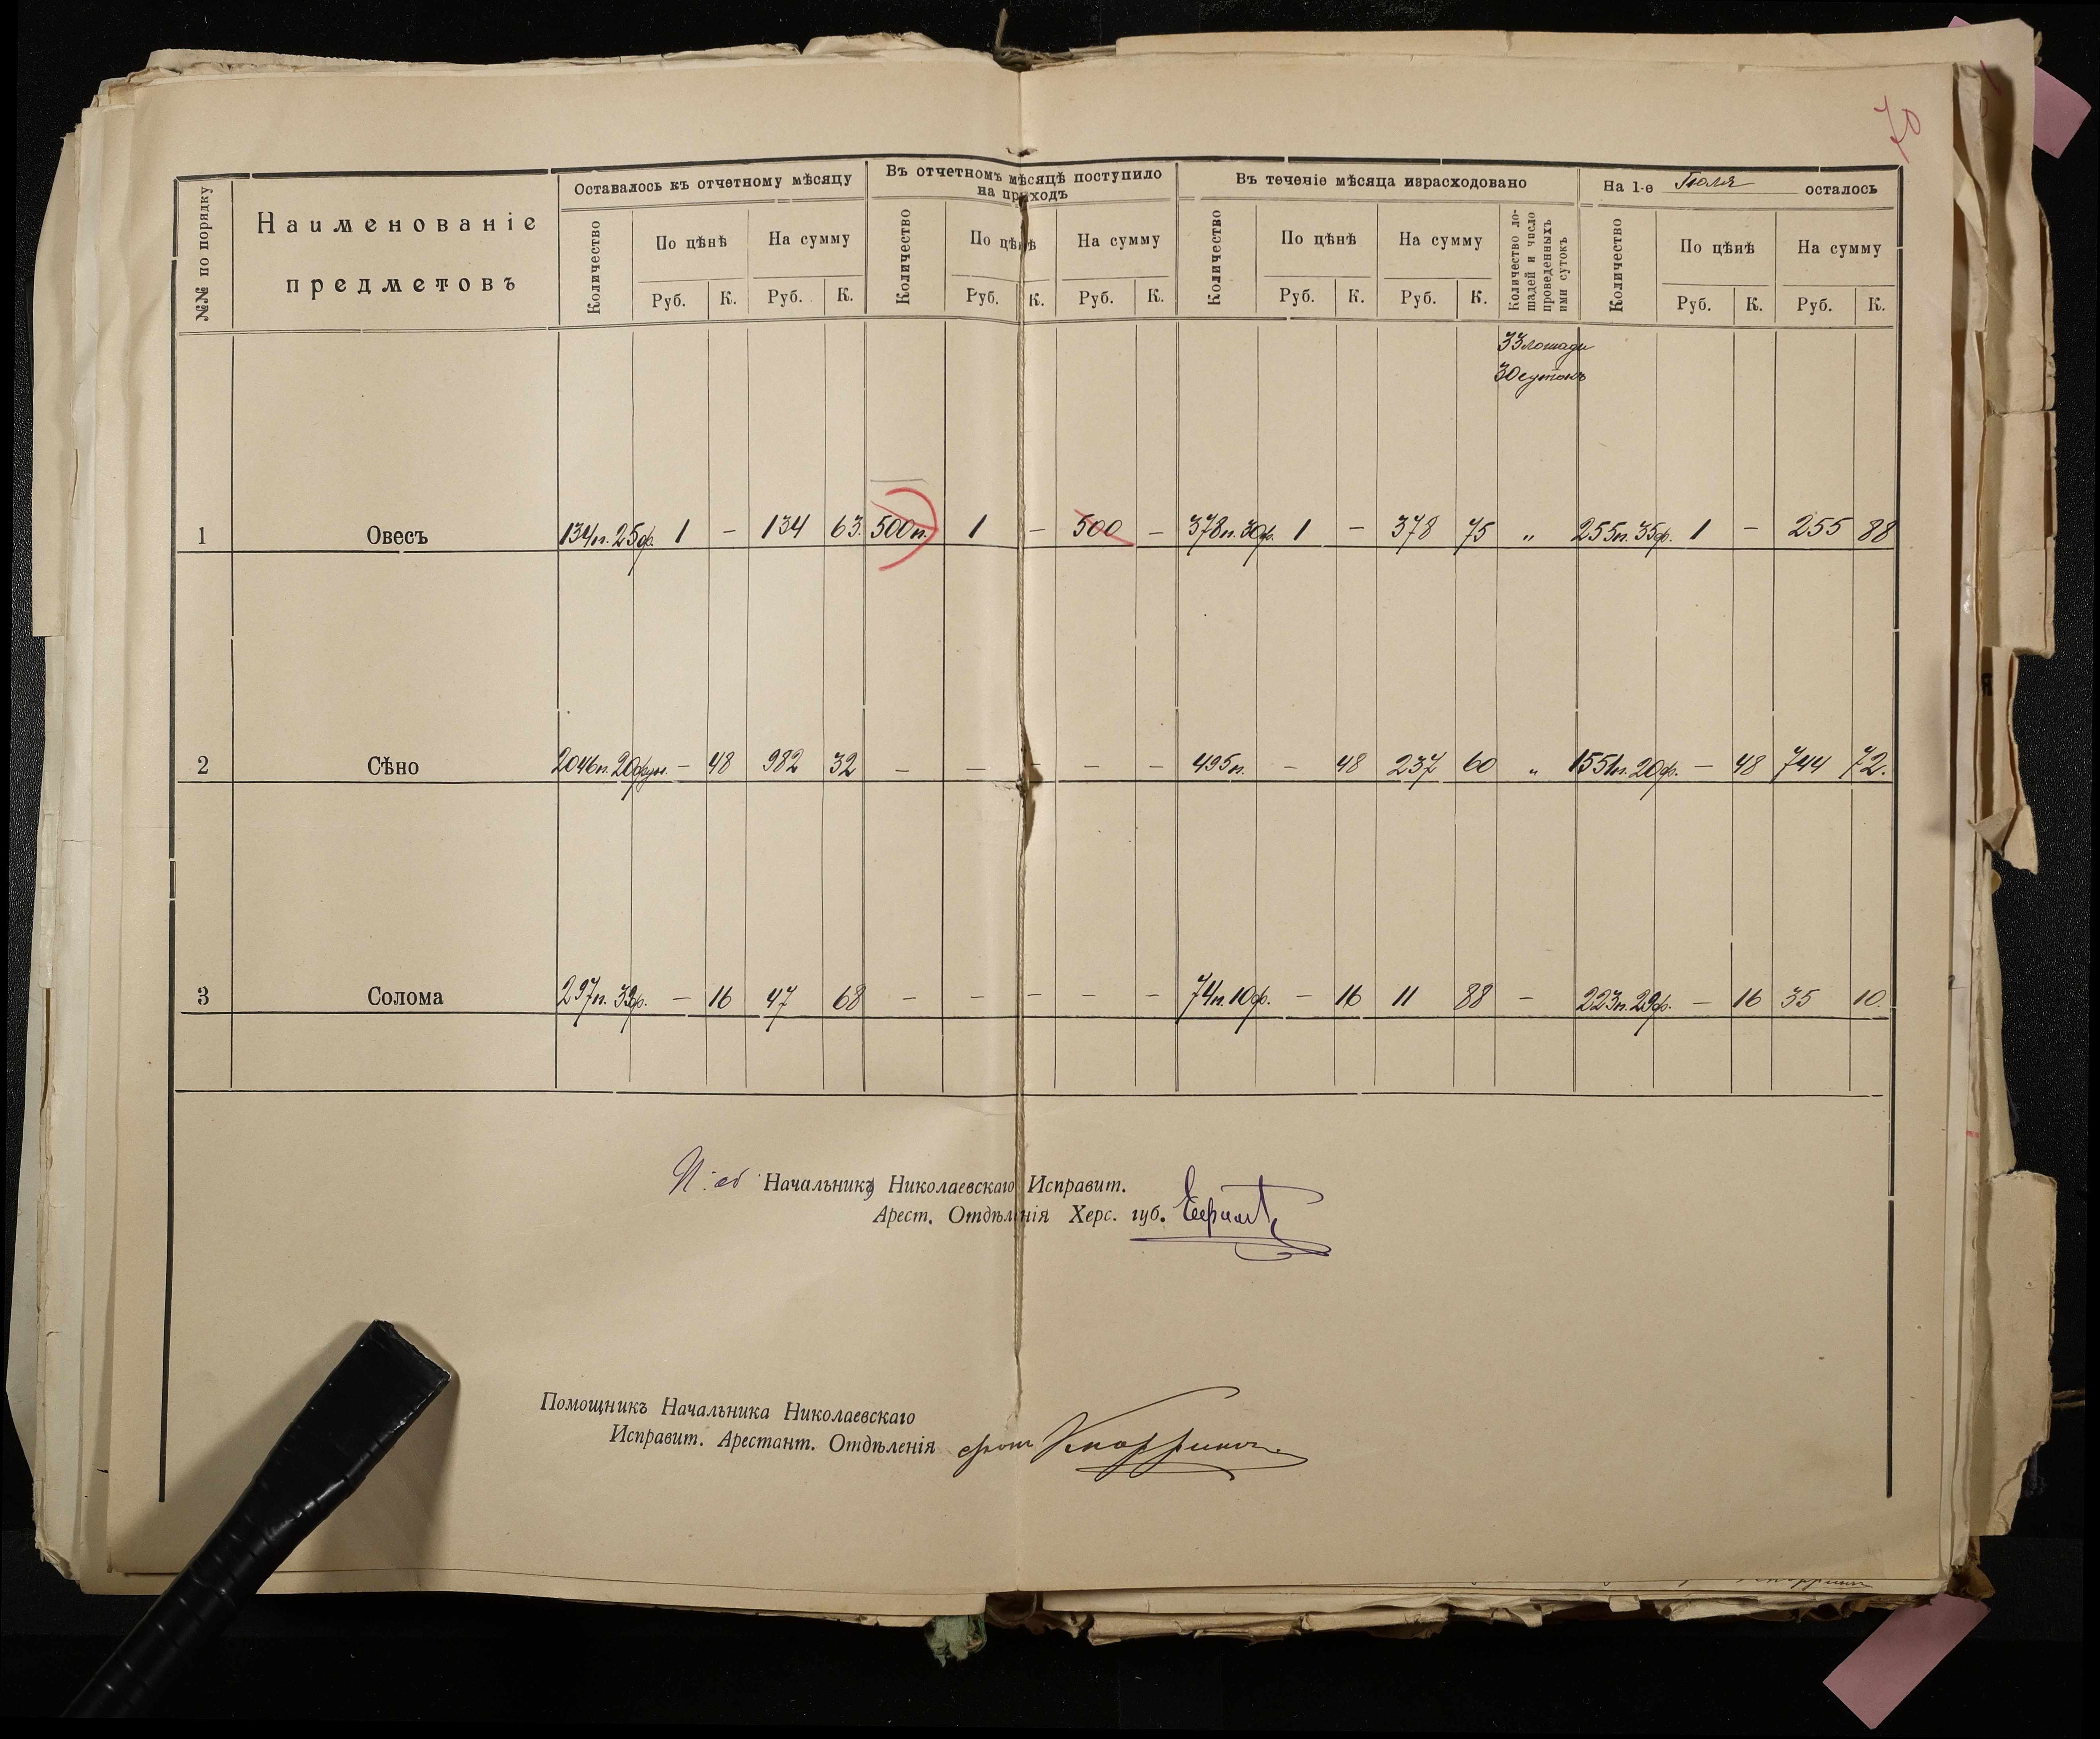 70
№№ по порядку
Наименованіе предметовъ
Оставалось къ отчетному мѣсяцу
Въ отчетномъ мѣсяцѣ поступило на приходъ
Въ теченіе мѣсяца израсходовано
На 1-е Іюля осталось
Количество По цѣнѣ На сумму Количество По цѣнѣ На сумму Количество По цѣнѣ На сумму Количество лошадей и число проведенныхъ ими сутокъ Количество По цѣнѣ На сумму
Руб. К. Руб. К. Руб. К. Руб. К. Руб. К. Руб. К. Руб. К. Руб. К.
33 лошади
30 сутокъ
1 Овесъ 134п. 25ф. 1 – 134 63. 500п. 1 – 500 – 378п. 30ф. 1 – 378 75 „ 255п. 35ф. 1 – 255 88
2 Сѣно 2046п. 20фун. – 48 982 32 – – – – – 495п. – 48 237 60 „ 1551п. 20ф. – 48 744 72.
3 Солома 297п. 39ф. – 16 47 68 – – – – – 74п. 10ф. – 16 11 88 – 223п. 29ф. – 16 35 10.
Начальника Николаевскаго Исправит.
Арест. Отдѣленія Херс. губ.
Помощникъ Начальника Николаевскаго
Исправит. Арестант. Отдѣленія фонъ Кнорринг